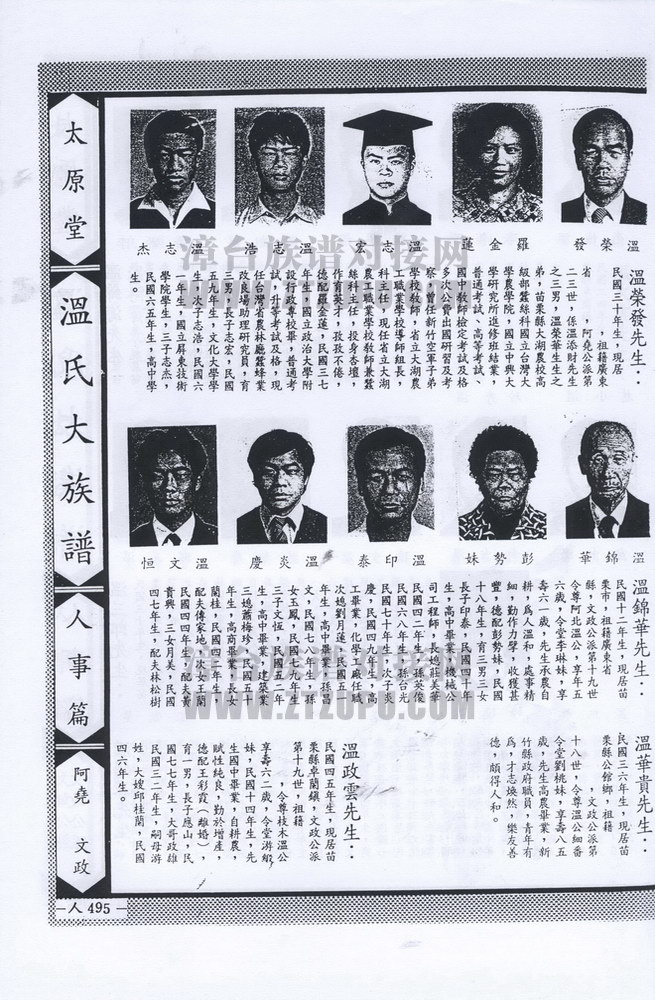 太原堂
溫氏大族譜
人事篇
阿堯 文政
人 495
溫榮發
羅金蓮
溫志宏
溫志浩
溫志杰
溫榮發先生：
民國三十年生，現居
省　，祖籍廣東
　，阿堯公派第
二三世，係溫添財先生
之三男，溫榮華生生之
弟，苗栗縣大湖農校高
級部蠶絲科國立台灣大
學農學院，國立中興大
學研究所進修班結業，
普通考試、高等考試、
國中教師檢定考試及格
多次公費出國研習及考
察，曾任新竹空軍子弟
學校教師，省立大湖農
工職業學校導師組長，
科主任，現任省立大湖
農工職業學校教師兼蠶
絲科主任，投身杏壇，
作育英才，孜孜不倦，
德配羅金蓮，民國三七
年生，國立政治大學附
設行政專校畢，普通考
試，升等考試及格，現
任台灣省農林廳蠶蜂業
改良場助理研究員，育
三男，長子志宏，民國
五九年生，文化大學學
生，次子志浩，民國六
一年生，國立屏東技術
學院學生，三子志杰，
民國六五年生，高中學
生。
溫錦華
彭勢妹
溫印泰
溫炎慶
溫文恒
溫錦華先生：
民國十二年生，現居苗
栗市，祖籍廣東省
縣，文政公派第十九世
令尊阿北溫公，享年五
六歲，令堂李琳妹，享
壽六一歲，先生承農自
耕，為人溫和，處事精
細，勤作力擘，收獲甚
豐，德配彭勢妹，民國
十八年生，育三男三女
長子印泰，民國四十年
生，高中畢業，機械公
司工程師，長媳莊美華
民國四二年生，孫英俊
民國六八年生，孫台光
民國七十年生，次子炎
慶，民國四九年生，高
工畢業，化學工廠任職
次媳劉月蓮，民國五一
年生，高中畢業，孫昌
文，民國七一年生，孫
女玉鳳，民國七九年生
三子文恆，民國五二年
生，高中畢業，建築業
三媳蕭梅珍，民國五十
年生，高商畢業，長女
蘭桂，民國四二年生，
配夫傳家地，次女王蘭
民國四四年生，配夫黃
貴興，三女月美，民國
四七年生，配夫林松樹
溫華貴先生：
民國三六年生，現居苗
栗縣公館鄉，祖籍
　，文政公派第
十八世，令尊溫公細番
令堂劉桃妹，享壽八五
歲，先生高農畢業，新
竹縣政府職員，青年有
為，才志煥然，樂友善
德，頗得人和。
溫政雲先生：
民國四五年生，現居苗
栗縣卓蘭鎮，文政公派
第十九世，祖籍
　，令尊枝木溫公
享壽六二歲，令堂游
妹，民國十四年生，先
生國中畢業，自耕農，
賦性純良，勤於增產，
德配王彩霞（離婚），
育一男，長子應山，民
國七七年生，大哥政雄
民國三二年生，嗣母游
姓，大嫂邱桂蘭，民國
四六年生。
漳台族谱对接网
漳台族谱对接网
WWW.ZTZUPU.COM